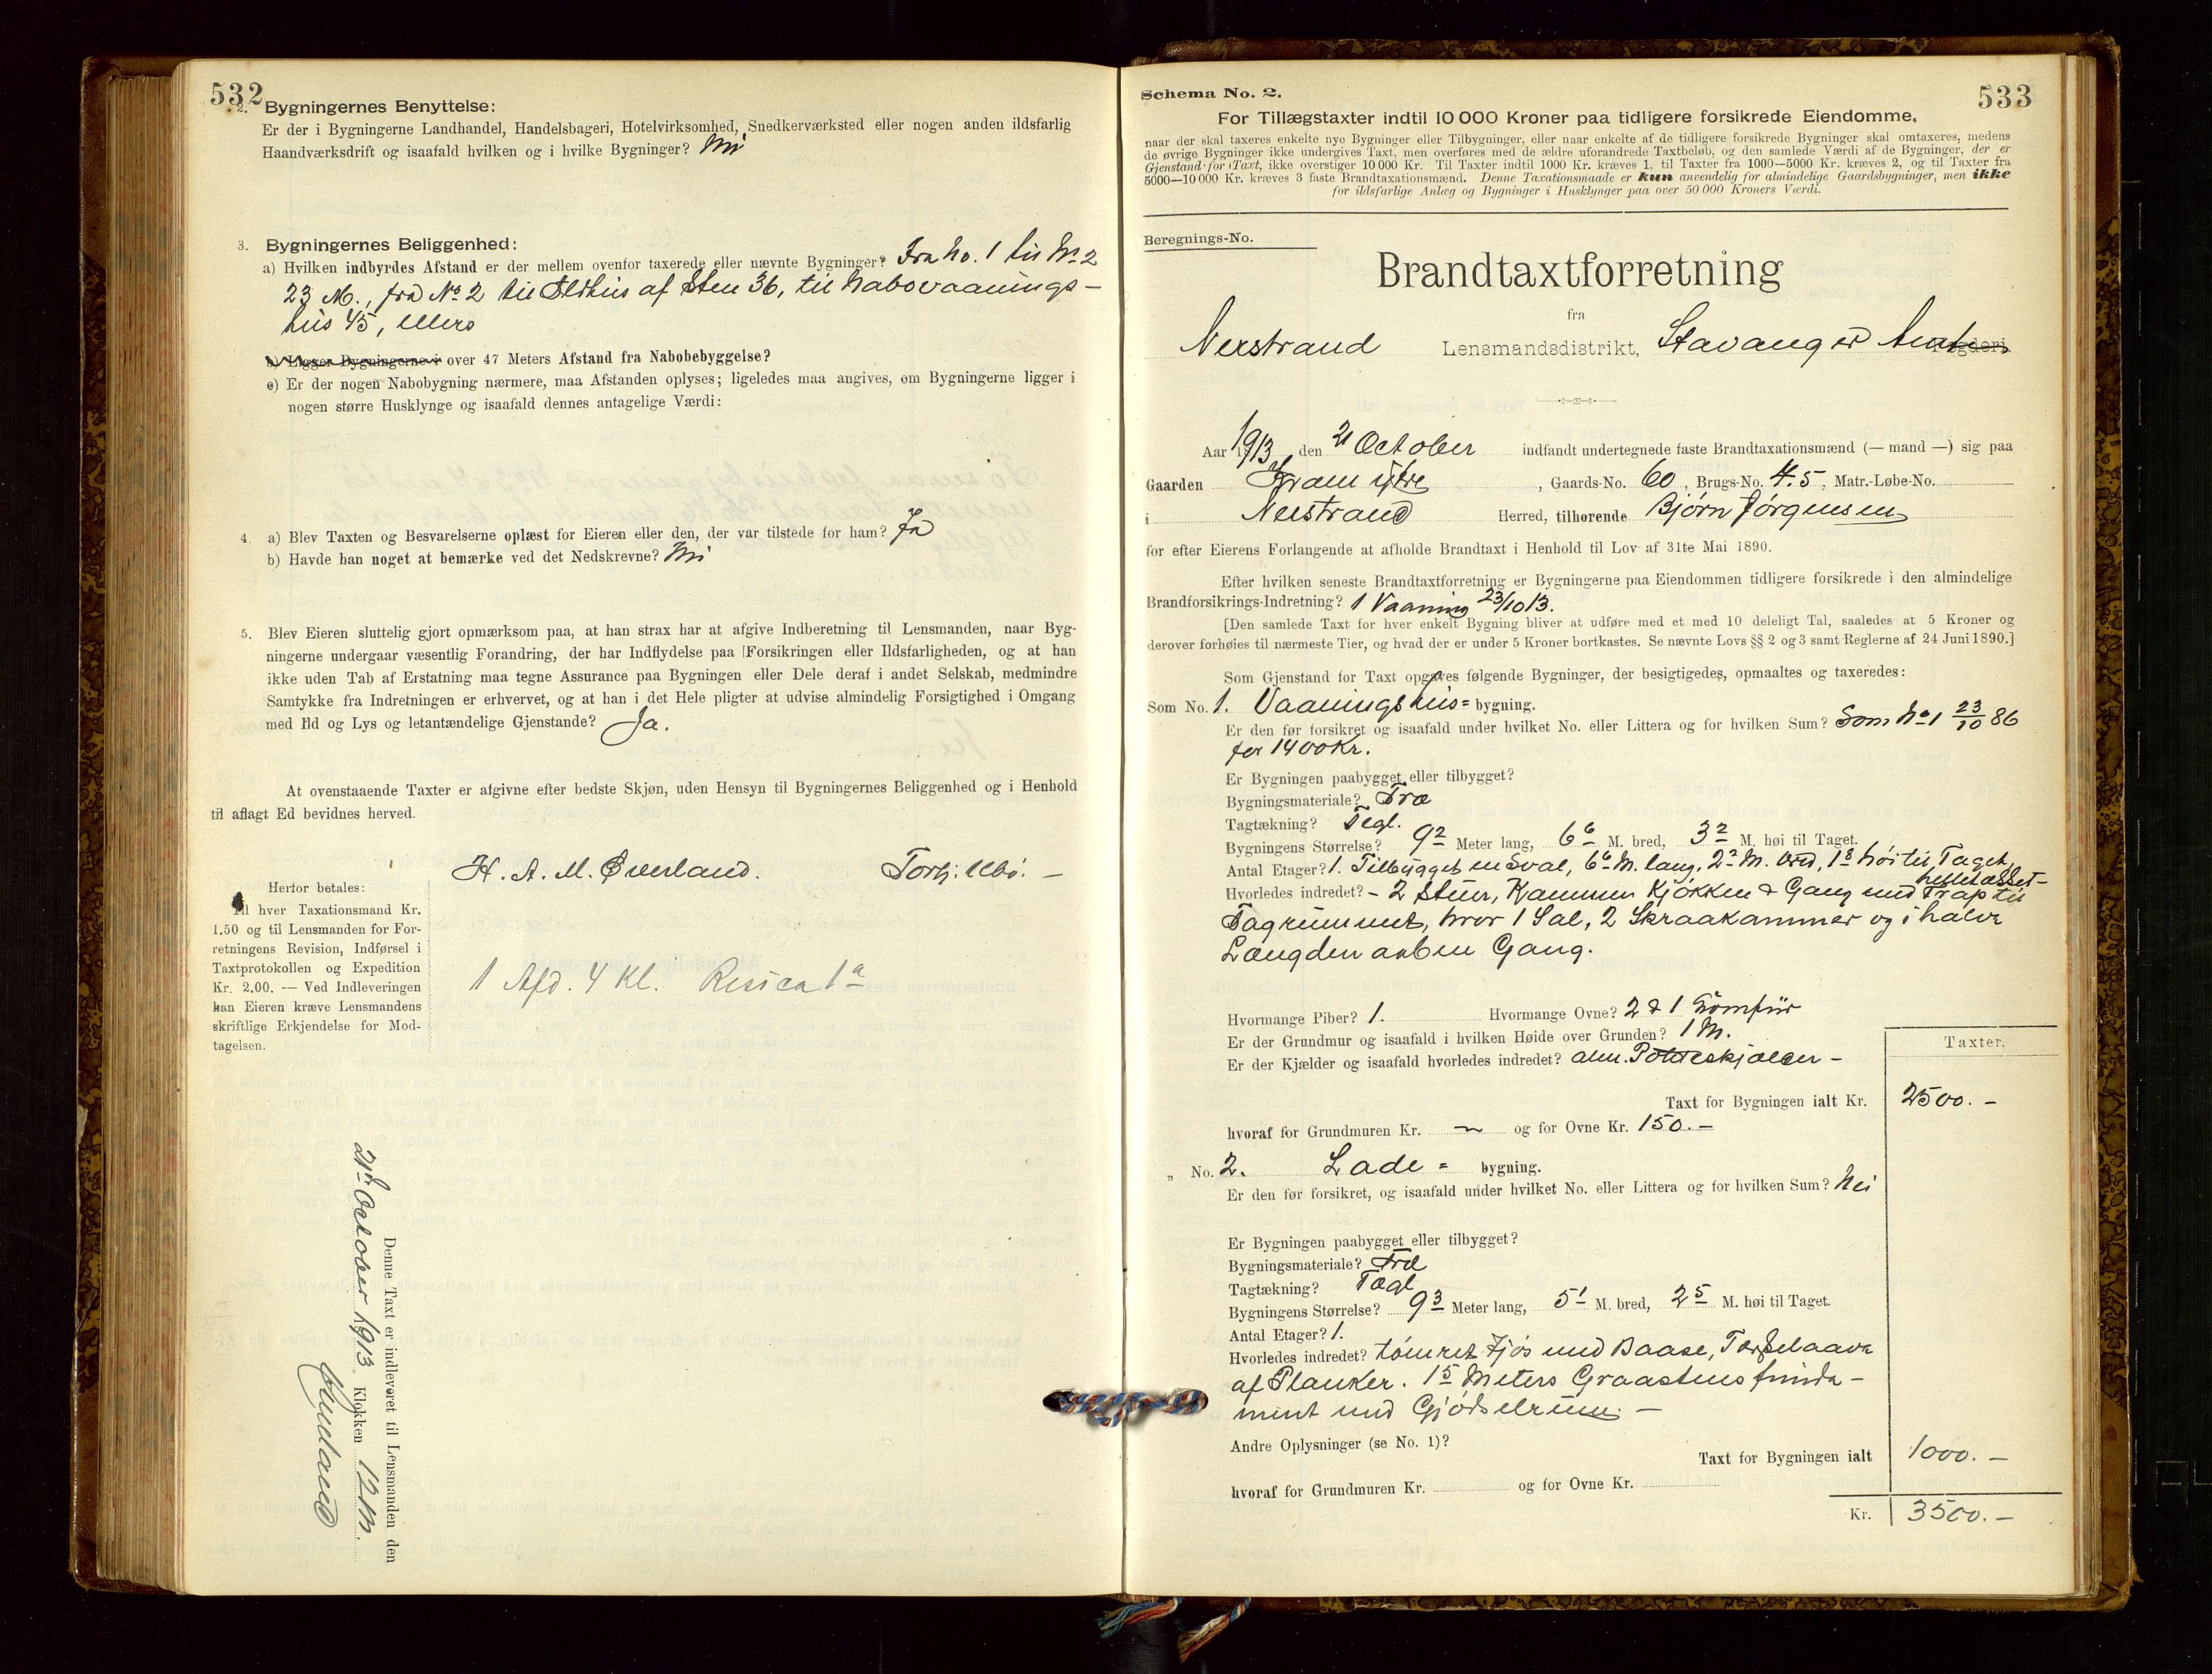 532
2. Bygningernes Benyttelse:
Er der i Bygningerne Landhandel, Handelsbageri, Hotelvirksomhed, Snedkerværksted eller nogen anden ildsfarlig
Haandværksdrift og isaafald hvilken og i hvilke Bygninger? Nei
3. Bygningernes Beliggenhed:
a) Hvilken indbyrdes Afstand er der mellem ovenfor taxerede eller nævnte Bygninger? Fra No. 1 til No 2
23 M., fra No 2 til Ildhus af Sten 36, til Nabovaanings-
hus 45, ellers
b) Ligger Bygningerne i over 47 Meters Afstand fra Nabobebyggelse?
c) Er der nogen Nabobygning nærmere, maa Afstanden oplyses; ligeledes maa angives, om Bygningerne ligger i
nogen større Husklynge og isaafald dennes antagelige Værdi:
4. a) Blev Taxten og Besvarelserne oplæst for Eieren eller den, der var tilstede for ham? Ja
b) Havde han noget at bemærke ved det Nedskrevne? Nei
5. Blev Eieren sluttelig gjort opmærksom paa, at han strax har at afgive Indberetning til Lensmanden, naar Byg-
ningerne undergaar væsentlig Forandring, der har Indflydelse paa Forsikringen eller Ildsfarligheden, og at han
ikke uden Tab af Erstatning maa tegne Assurance paa Bygningen eller Dele deraf i andet Selskab, medmindre
Samtykke fra Indretningen er erhvervet, og at han i det Hele pligter at udvise almindelig Forsigtighed i Omgang
med Ild og Lys og letantændelige Gjenstande? Ja.
At ovenstaaende Taxter er afgivne efter bedste Skjøn, uden Hensyn til Bygningernes Beliggenhed og i Henhold
til aflagt Ed bevidnes herved.
H. A. M. Øverland. Torb:
Herfor betales:
Til hver Taxationsmand Kr.
1.50 og til Lensmanden for For-
retningens Revision, Indførsel i
Taxtprotokollen og Expedition
Kr. 2.00. — Ved Indleveringen
kan Eieren kræve Lensmandens
skriftlige Erkjendelse for Mod-
tagelsen.
1 Afd. 4 Kl. Risica 1a
Denne Taxt er indleveret til Lensmanden den
21de October 1913 Klokken 12 M.
533
Schema No. 2.
For Tillægstaxter indtil 10 000 Kroner paa tidligere forsikrede Eiendomme,
naar der skal taxeres enkelte nye Bygninger eller Tilbygninger, eller naar enkelte af de tidligere forsikrede Bygninger skal omtaxeres, medens
de øvrige Bygninger ikke undergives Taxt, men overføres med de ældre uforandrede Taxtbeløb, og den samlede Værdi af de Bygninger, der er
Gjenstand for Taxt, ikke overstiger 10 000 Kr. Til Taxter indtil 1000 Kr. kræves 1, til Taxter fra 1000—5000 Kr. kræves 2, og til Taxter fra
5000—10 000 Kr. kræves 3 faste Brandtaxationsmænd. Denne Taxationsmaade er kun anvendelig for almindelige Gaardsbygninger, men ikke
for ildsfarlige Anlæg og Bygninger i Husklynger paa over 50 000 Kroners Værdi.
Beregnings-No.
Brandtaxtforretning
fra
Nerstrand Lensmandsdistrikt, Stavanger Amt Fogderi.
Aar 1913 den 21 October indfandt undertegnede faste Brandtaxationsmænd (— mand —) sig paa
Gaarden Fram ytre, Gaards-No. 60, Brugs-No. 4.5, Matr.-Løbe-No.
i Nerstrand Herred, tilhørende Bjørn Jørgensen
for efter Eierens Forlangende at afholde Brandtaxt i Henhold til Lov af 31te Mai 1890.
Efter hvilken seneste Brandtaxtforretning er Bygningerne paa Eiendommen tidligere forsikrede i den almindelige
Brandforsikrings-Indretning? 1 Vaaning 23/10 13.
[Den samlede Taxt for hver enkelt Bygning bliver at udføre med et med 10 deleligt Tal, saaledes at 5 Kroner og
derover forhøies til nærmeste Tier, og hvad der er under 5 Kroner bortkastes. Se nævnte Lovs §§ 2 og 3 samt Reglerne af 24 Juni 1890.]
Som Gjenstand for Taxt opgaves følgende Bygninger, der besigtigedes, opmaaltes og taxeredes:
Som No. 1. Vaaningshus= bygning.
Er den før forsikret og isaafald under hvilket No. eller Littera og for hvilken Sum? Som No 1 23/10 86
for 1400 Kr.
Er Bygningen paabygget eller tilbygget?
Bygningsmateriale? Træ
Tagtækning? Tegl.
Bygningens Størrelse? 9 2 Meter lang, 6 6 M. bred, 3 2 M. høi til Taget.
Antal Etager? 1. Tilbygget en Sval, 6 6 M. lang, 2 2 M. bred, 1 8 høi til Taget,
helletækket—
Hvorledes indredet? — 2 Stuer, Kammer Kjøkken & Gang med Trap til
Tagrummet, hvor 1 Sal, 2 Skraakammer og i halve
Længden aaben Gang.
Hvormange Piber? 1. Hvormange Ovne? 2 & 1 Komfür
Er der Grundmur og isaafald i hvilken Høide over Grunden? 1 M.
Er der Kjælder og isaafald hvorledes indredet? alm. Poteteskjælder —
Taxter.
Taxt for Bygningen ialt Kr. 2500. —
hvoraf for Grundmuren Kr. — og for Ovne Kr. 150. —
„ No. 2. Lade = bygning.
Er den før forsikret, og isaafald under hvilket No. eller Littera og for hvilken Sum? Nei
Er Bygningen paabygget eller tilbygget?
Bygningsmateriale? Træ
Tagtækning? Tægl
Bygningens Størrelse? 9 3 Meter lang, 5 1 M. bred, 2 5 M. høi til Taget.
Antal Etager? 1.
Hvorledes indredet? tømret Fjøs med Baase, Tærskelaave
af Planker. 1 5 Meters Graastensfunda-
ment med Gjødselrum. —
Andre Oplysninger (se No. 1)?
Taxt for Bygningen ialt 1000. —
hvoraf for Grundmuren Kr. og for Ovne Kr.
Kr. 3500. —